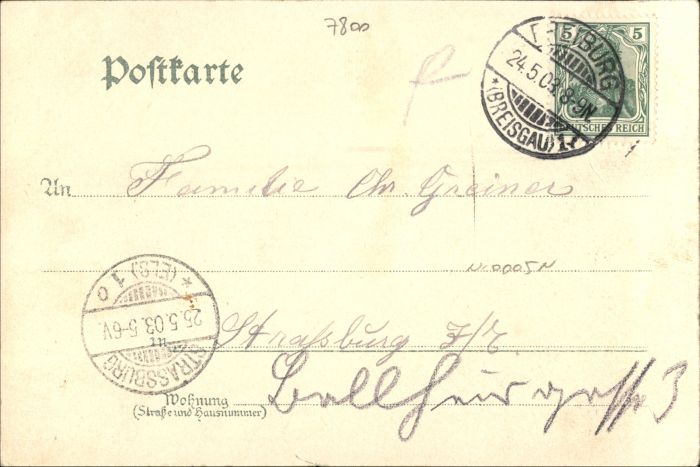 7800
Postkarte
5 5
DEUTSCHES REICH
FREIBURG
24.5.03.8-9N
*(BREISGAU)1
An Familie Chr. Greiner
STRASSBURG
25.5.03.5-6V.
*(ELS) 1 o
in Straßburg
Wohnung
(Straße und Hausnummer)
3